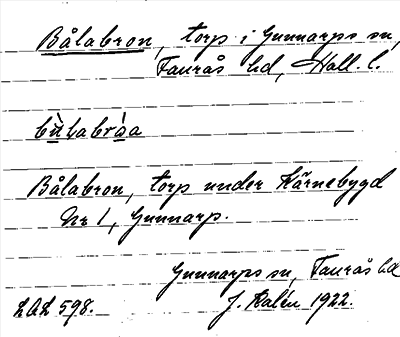 Bålabron, torp i Gunnarps sn,
Faurås hd, Hall. l.
Bålabron, torp under Kärnebygd
Nr 1, Gunnarp.
Gunnarps sn, Faurås hd
598. J. Kalén 1922.